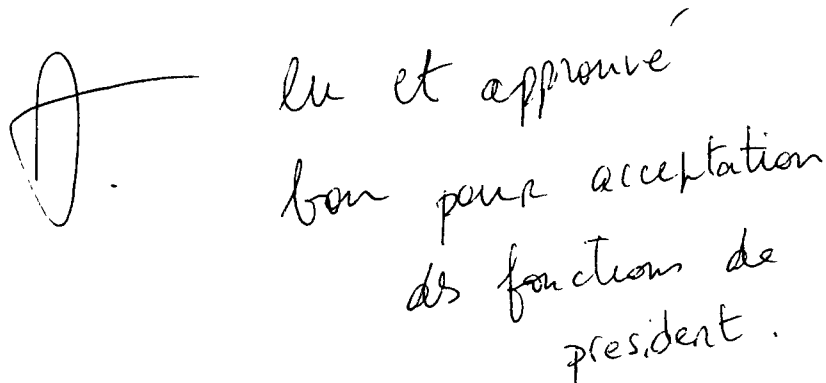 lu et approuvé
bon pour acceptation
des fonctions de
president.